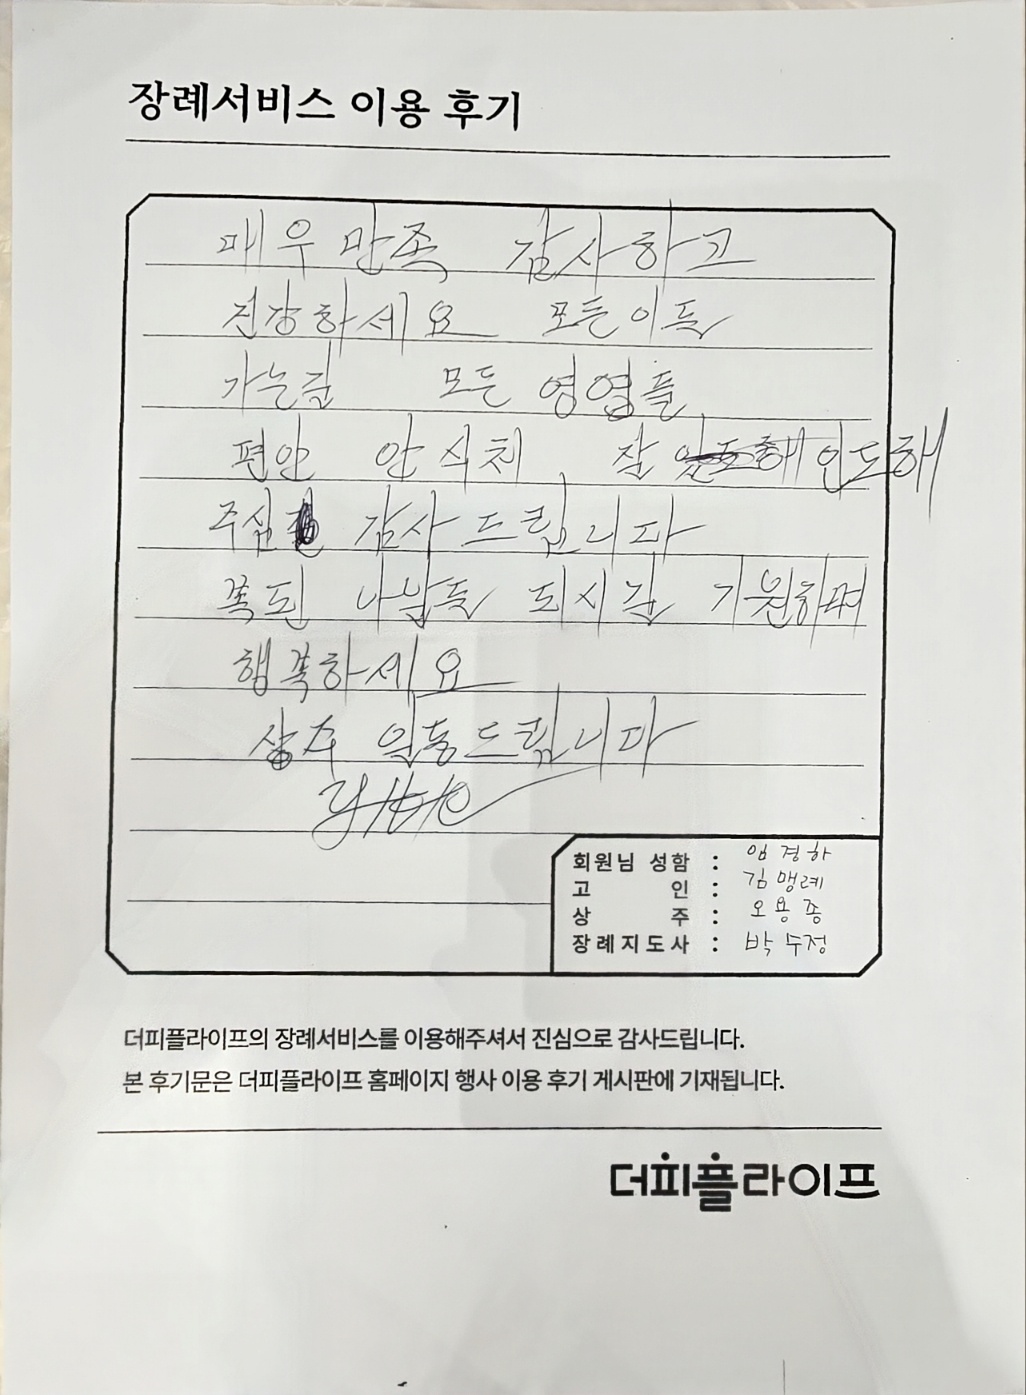 장례서비스 이용 후기
매우 만족 감사하고
건강하세요 모든이들
가는길 모든 영혐들
편안 안식처 잘 인도해
주심 감사 드립니다
복된 나날들 되시길 기원하며
행복하세요
상주 일동드립니다
회원님 성함 : 엄경하
고 인 : 김맹례
상 주 : 오용종
장례지도사 : 박수정
더피플라이프의 장례서비스를 이용해주셔서 진심으로 감사드립니다.
본 후기문은 더피플라이프 홈페이지 행사 이용 후기 게시판에 기재됩니다.
더피플라이프